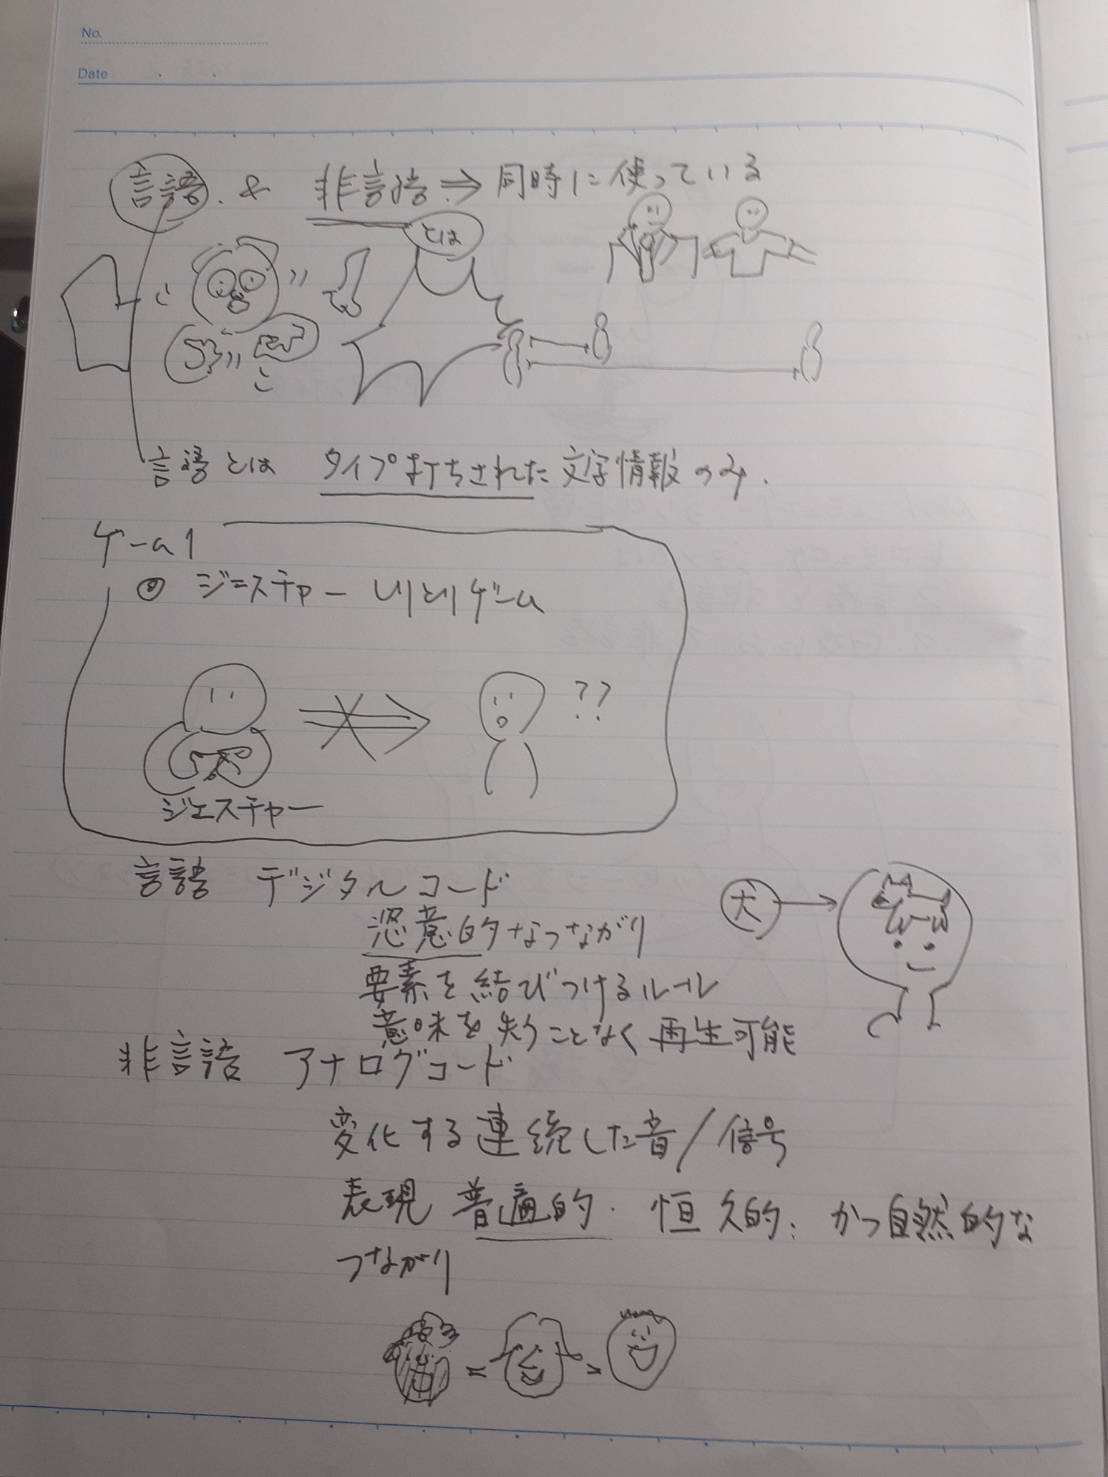 No.
Date
言語 & 非言語 ⇒ 同時に使っている
とは
言語とは タイプ打ちされた文字情報のみ.
ゲーム1
◎ ジェスチャーしりとりゲーム
??
ジェスチャー
言語 デジタルコード
犬
恣意的なつながり
要素を結びつけるルール
意味を失うことなく再生可能
非言語 アナログコード
変化する連続した音/信号
表現 普遍的. 恒久的. かつ自然的な
つながり